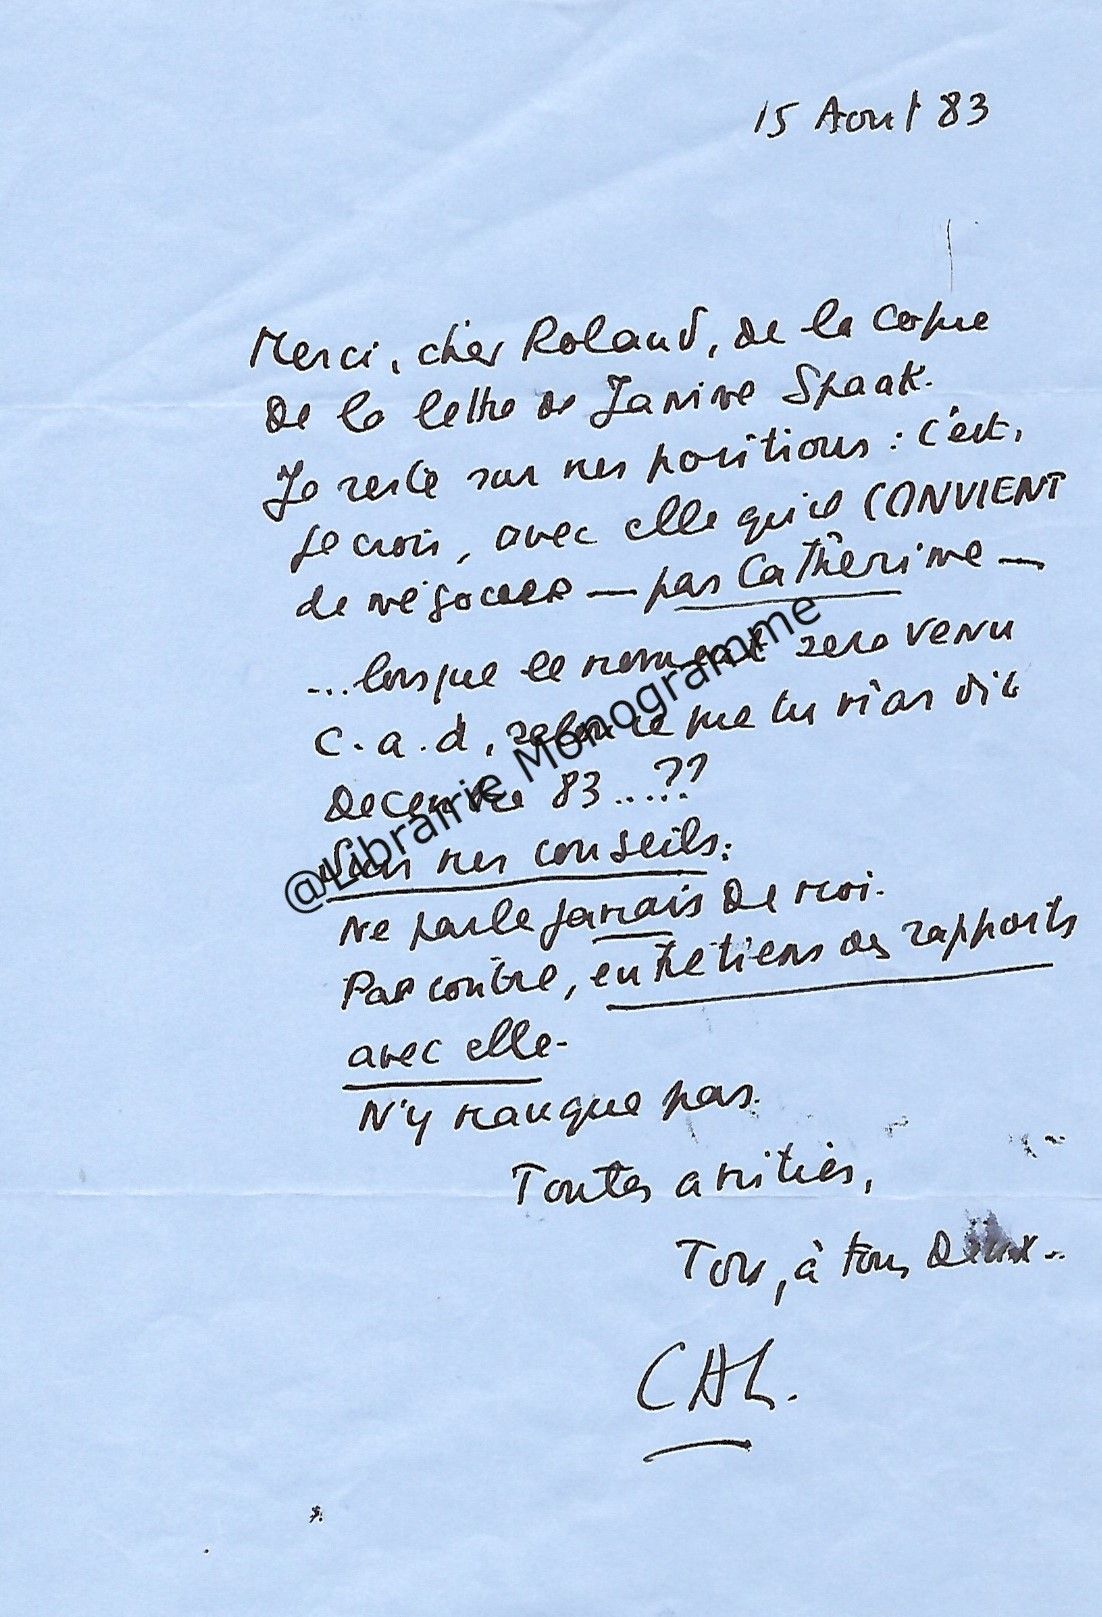 15 Aout 83
Merci, cher Roland, de la copie
de la lettre de Janine Spaak.
Je reste sur mes positions : c'est,
je crois, avec elle qu'il CONVIENT
de négocier — pas Catherine —
...lorsque le moment sera venu
c.a.d, selon ce que tu m'as dit
Decembre 83....??
mes conseils:
Ne parle jamais de moi.
Par contre, entretiens des rapports
avec elle.
N'y manque pas.
Toutes amitiés,
à tous deux..
CAL.
@Librairie Monogramme